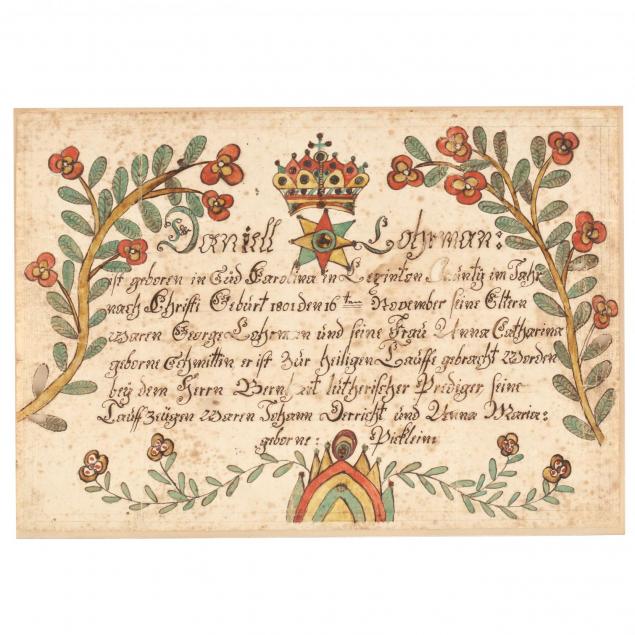 Daniell Lohrman:
ist geboren in Süd Carolina in Lexinton Cäuntÿ im Jahr
nach Christi Gebürt 1801 den 16 ten November seine Eltern
waren George Lohrman und seine Frau Anna Catharina
geborne Schmitten er ist zur heiligen Tauffe gebracht worden
beÿ dem Herrn lütherischer Prediger seine
Tauff Zeügen waren Johann Derricht und Anna Maria:
geborne: Pickleim